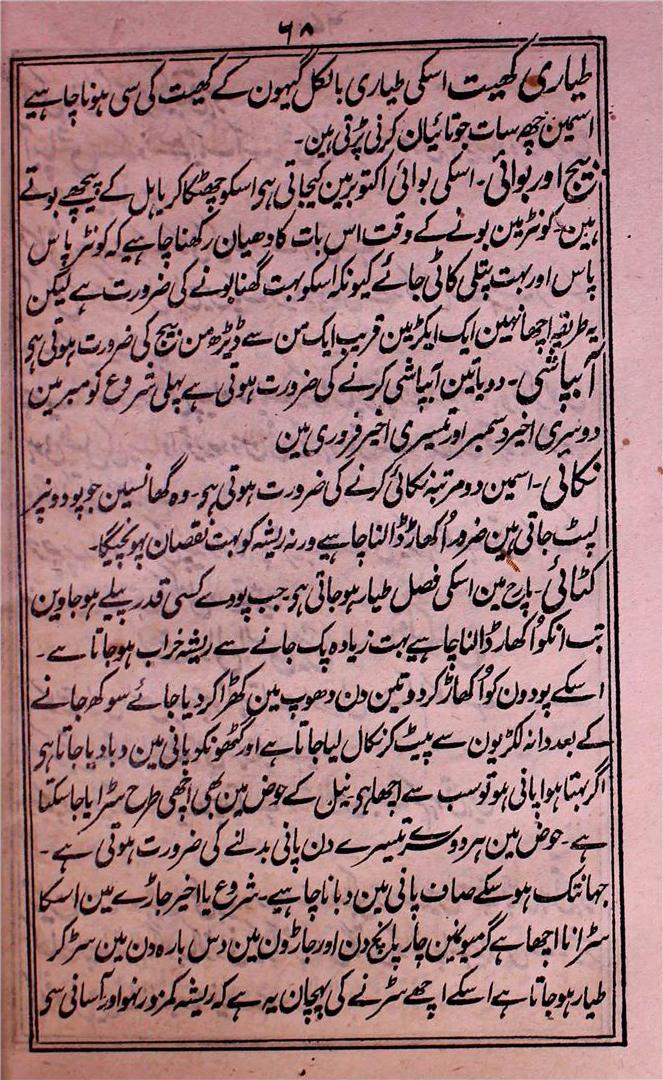 ۶۸
طیاری کھیت اسکی طیاری بالکل گیہون کے کھیت کی سی ہونا چاہیے
اسمین چھ سات جوتائیان کرنی پڑتی ہین۔
بیج اور بوائی۔ اسکی بوائی اکتوبر مین کیجاتی ہو اسکو چھٹکا کر یا ہل کے پیچھے بوتے
ہین۔ کونٹر مین بونے کے وقت اس بات کا دھیان رکھنا چاہیے کہ کونٹر پاس
پاس اور بہت پتلی کاٹی جائے کیونکہ اسکو بہت گھنا بونے کی ضرورت ہے لیکن
یہ طریقہ اچھا نہین ایک ایکڑ مین قریب ایک من سے ڈیڑھ من بیج کی ضرورت ہوتی ہو
آبپاشی۔ دو یا تین آبپاشی کرنے کی ضرورت ہوتی ہے پہلی شروع نومبر مین
دوسری اخیر دسمبر اور تیسری اخیر فروری مین
نکائی۔ اسمین دو مرتبہ نکائی کرنے کی ضرورت ہوتی ہو۔ وہ گھانسین جو پودونپر
لپٹ جاتی ہین ضرور اُکھاڑ ڈالنا چاہیے ورنہ ریشہ کو بہت نقصان پہونچیگا۔
کٹائی۔ مارچ مین اسکی فصل طیار ہوجاتی ہو جب پودے کسی قدر پیلے ہوجاوین
تب انکو اُکھاڑ ڈالنا چاہیے بہت زیادہ پک جانے سے ریشہ خراب ہوجاتا ہے۔
اسکے پودون کو اُکھاڑ کر دو تین دن دھوپ مین کھڑا کر دیا جائے سوکھ جانے
کے بعد دانہ لکڑیون سے پیٹ کر نکال لیا جاتا ہے اور گٹھونکو پانی مین دبا دیا جاتا ہو
اگر بہتا ہوا پانی ہو تو سب سے اچھا ہو نیل کے حوض مین بھی اچھی طرح سڑایا جا سکتا
ہے۔ حوض مین ہر دوسرے تیسرے دن پانی بدلنے کی ضرورت ہوتی ہے۔
جہانتک ہو سکے صاف پانی مین دبانا چاہیے۔ شروع یا اخیر جاڑے مین اسکا
سڑانا اچھا ہے گرمیونمین چار پانچ دن اور جاڑون مین دس بارہ دن مین سڑ کر
طیار ہوجاتا ہے اسکے اچھے سڑنے کی پہچان یہ ہے کہ ریشہ کمزور نہو اور آسانی سی